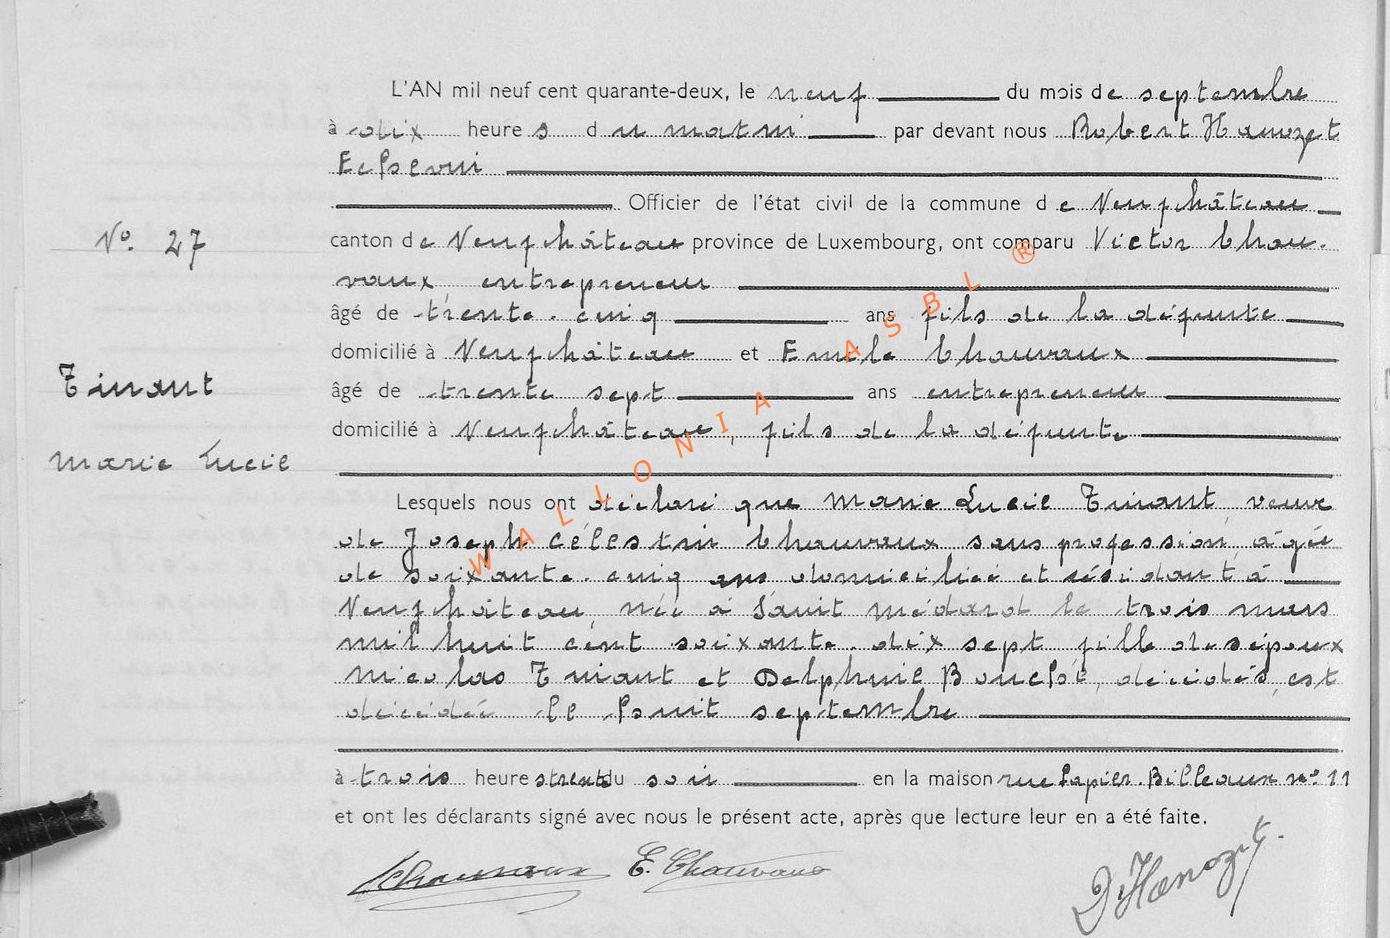 L'AN mil neuf cent quarante-deux, le neuf du mois de septembre
à dix heures du matin par devant nous Robert Hanozet
Echevin
Officier de l'état civil de la commune de Neufchâteau
N° 27
canton de Neufchâteau province de Luxembourg, ont comparu Victor Chau-
vaux entrepreneur
âgé de trente-cinq ans fils de la défunte
domicilié à Neufchâteau et Emile Chauvaux
Tinant
âgé de trente sept ans entrepreneur
domicilié à Neufchâteau, fils de la défunte
Marie Lucie
Lesquels nous ont déclaré que Marie Lucie Tinant, veuve
de Joseph Célestin Chauvaux sans profession, âgée
de soixante-cinq ans domiciliée et résidant à
Neufchâteau, née à Saint Médard le trois mars
mil huit cent soixante-dix sept fille des époux
Nicolas Tinant et Delphine, décédés, est
décédée le huit septembre
à trois heures trente du soir en la maison rue Papier-Billeaux n° 11
et ont les déclarants signé avec nous le présent acte, après que lecture leur en a été faite.
Chauvaux E. Chauvaux
Hanozet.
WALLONIA ASBL ®